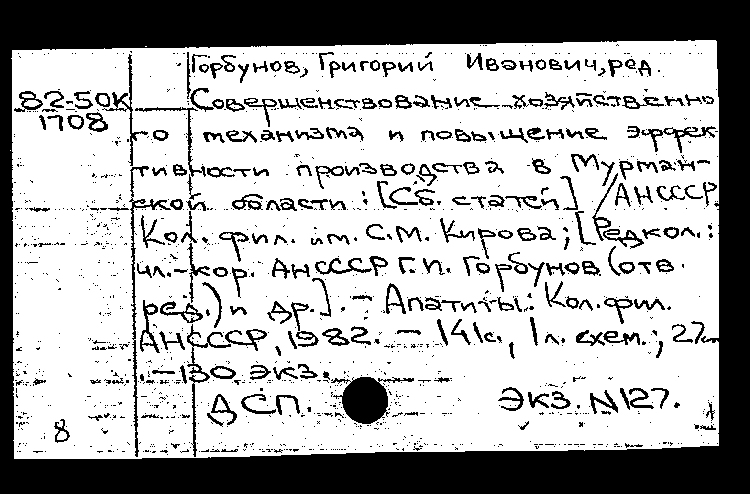 Горбунов, Григорий Иванович, ред.
82-50К
1708
Совершенствование хозяйственно
го механизма и повышение эффек
тивности производства в Мурман-
ской области : [Сб. статей] / АНСССР.
Кол. фил. им. С.М. Кирова; [Редкол.:
чл.-кор. АНСССР Г.И. Горбунов (отв.
ред.) и др.]. - Апатиты: Кол. фил.
АНСССР, 1982. - 141с., 1 л. схем.; 27см
. -130 экз.
ДСП. Экз. N127.
8